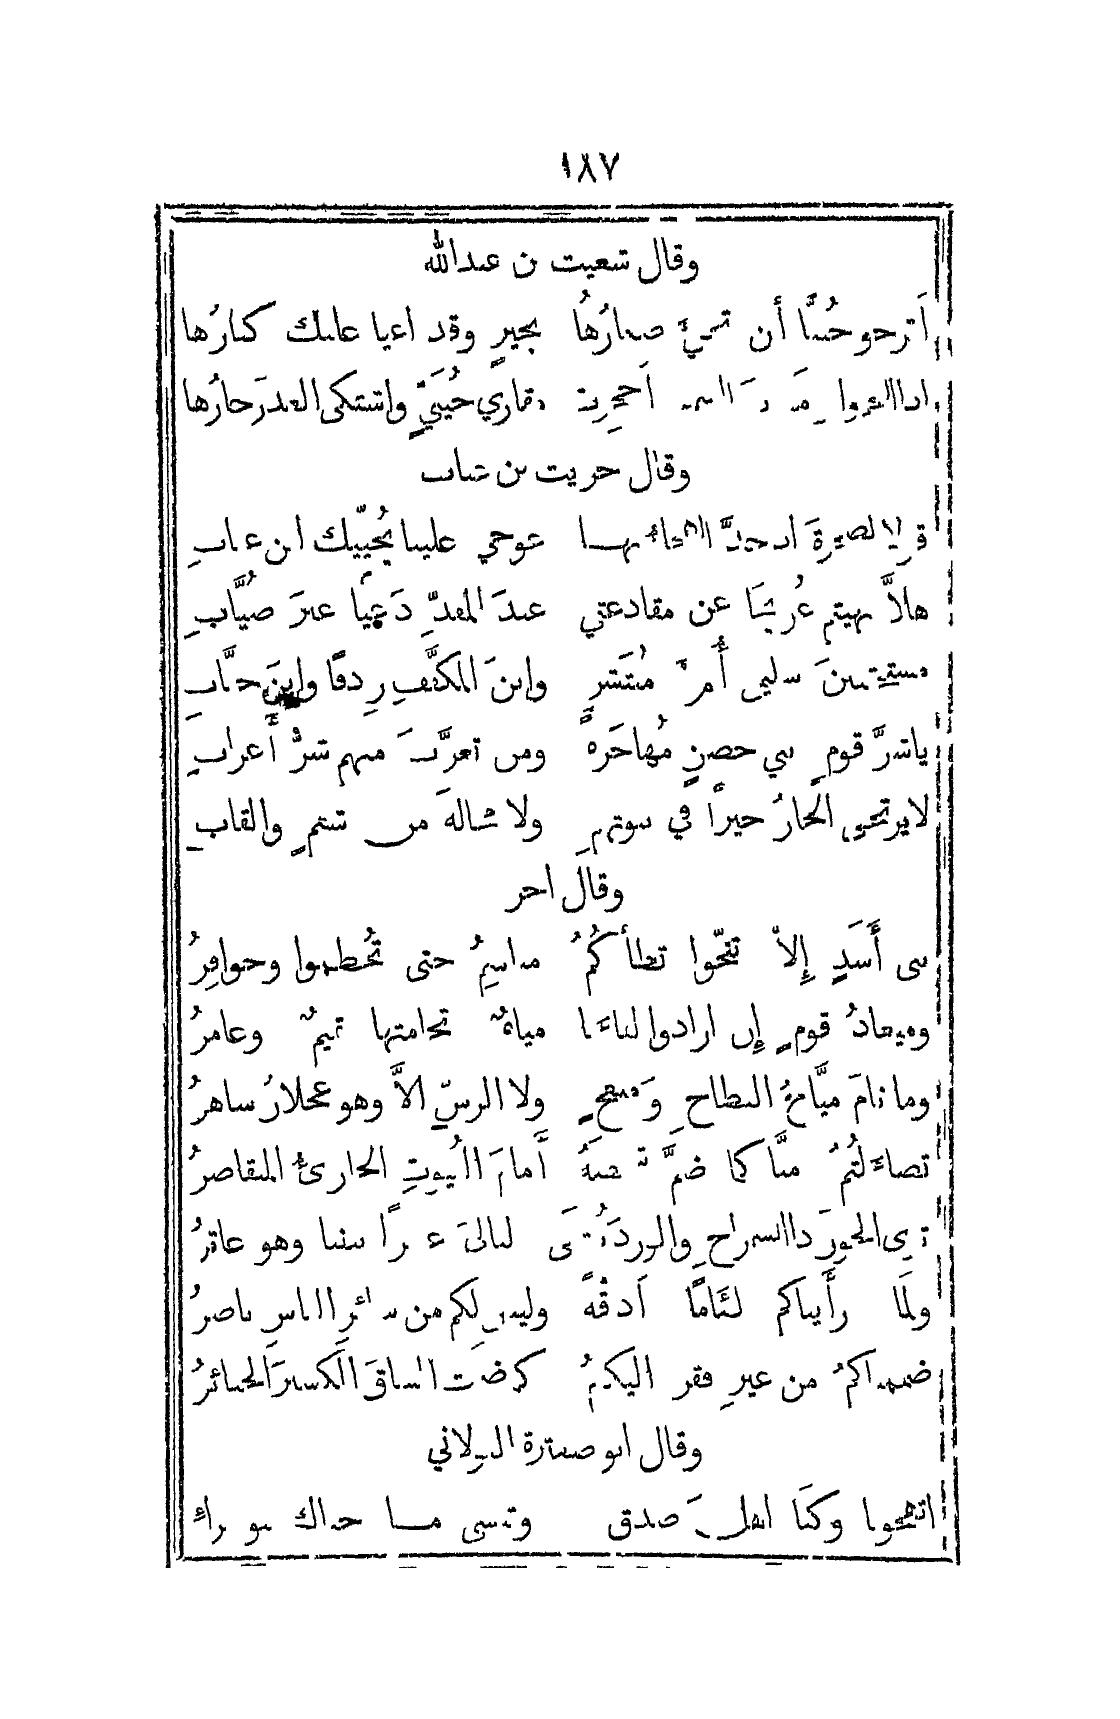 ١٨٧
وقال شعيث بن عبدالله
أَترجو حُيَيًّا أن تجيءَ صغارُها بخيرٍ وقد اعيا عليك كبارُها
اذا النجم وافى مَغرب الشمس أَحجرت مقاري حُيَيٍّ واشتكى الغدرَ جارُها
وقال حريث بن عناب
قولا لصخرةَ اذ جدَّ الهجاء بها عوجي علينا يُحيّيك ابن عناب
هلاَّ نهيتم عُويجًا عن مقاذعتي عبدَ المقذِّ دَعِيًّا غيرَ صُيَّابِ
مستحقبينَ سليمى أُمَّ مُنتَشرِ وابنَ المكفَّفِ رِدفًا وابنَ خبَّابِ
ياشرَّ قومٍ بني حصنٍ مُهاجَرةً ومن تعرَّبَ منهم شرُّ أَعرابِ
لايرتجي الجارُ خيرًا في بيوتهمِ ولا محالةَ من شتمٍ والقابِ
وقال اخر
بني أَسَدٍ إِلاّ تنحّوا تطأْكُمُ مناسِمُ حتى تُحطموا وحوافِرُ
وميعادُ قومٍ إِن ارادوا لقاءَنا مياهٌ تحامتها تميمٌ وعامرُ
وما نامَ ميَّاحُ البطاحِ وَمنعجٍ ولا الرسّ الاَّ وهو عجلانُ ساهرُ
تضاءَلتُمُ منَّا كما ضمَّ شخصهُ أَمامَ البُيوتِ الخارئُ المتقاصرُ
ترى الجونَ ذا الشمراخِ والوردَ يُبتغَى ليالىَ عشرًا بيننا وهو عائرُ
ولَمَّا رأَيناكم لئامًا أَدقةً وليس لكم من سائرِ الناسِ ناصرُ
ضممناكمُ من غيرِ فقر اليكمُ كما ضمت الساقَ الكسيرَ الجبائرُ
وقال ابو صعترة البولاني
اتهجونا وكنَّا اهلَ صدق وتنسى ما حباك ابو براء